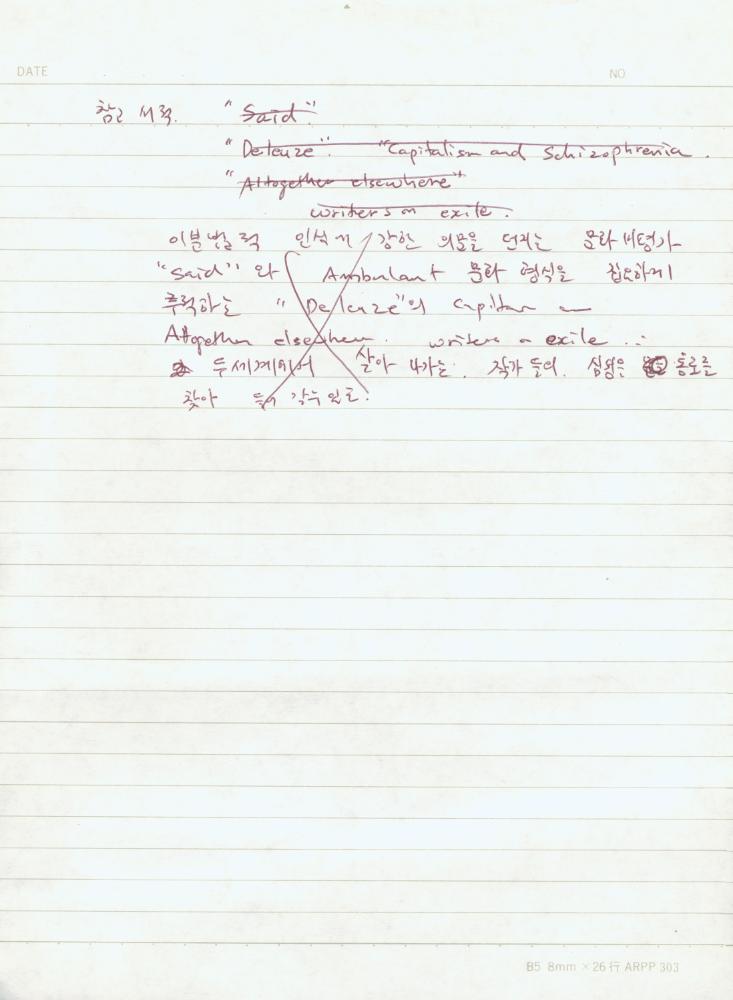 DATE
NO
참고 서적. "Said"
"Deleuze". "Capitalism and Schizophrenia.
"Altogether elsewhere"
writers on exile.
이분법적 인식에 강한 의문을 던지는 문화 비평가
"Said"와 Ambulant 문화 형식을 집요하게
추적하는 "Deleuze"의
Altogether elsewhere. writers on exile
두 세계의 살아 나가는 작가 들의 심왕은 통로를
찾아 들어 갈수 있고.
B5 8mm × 26行 ARPP 303